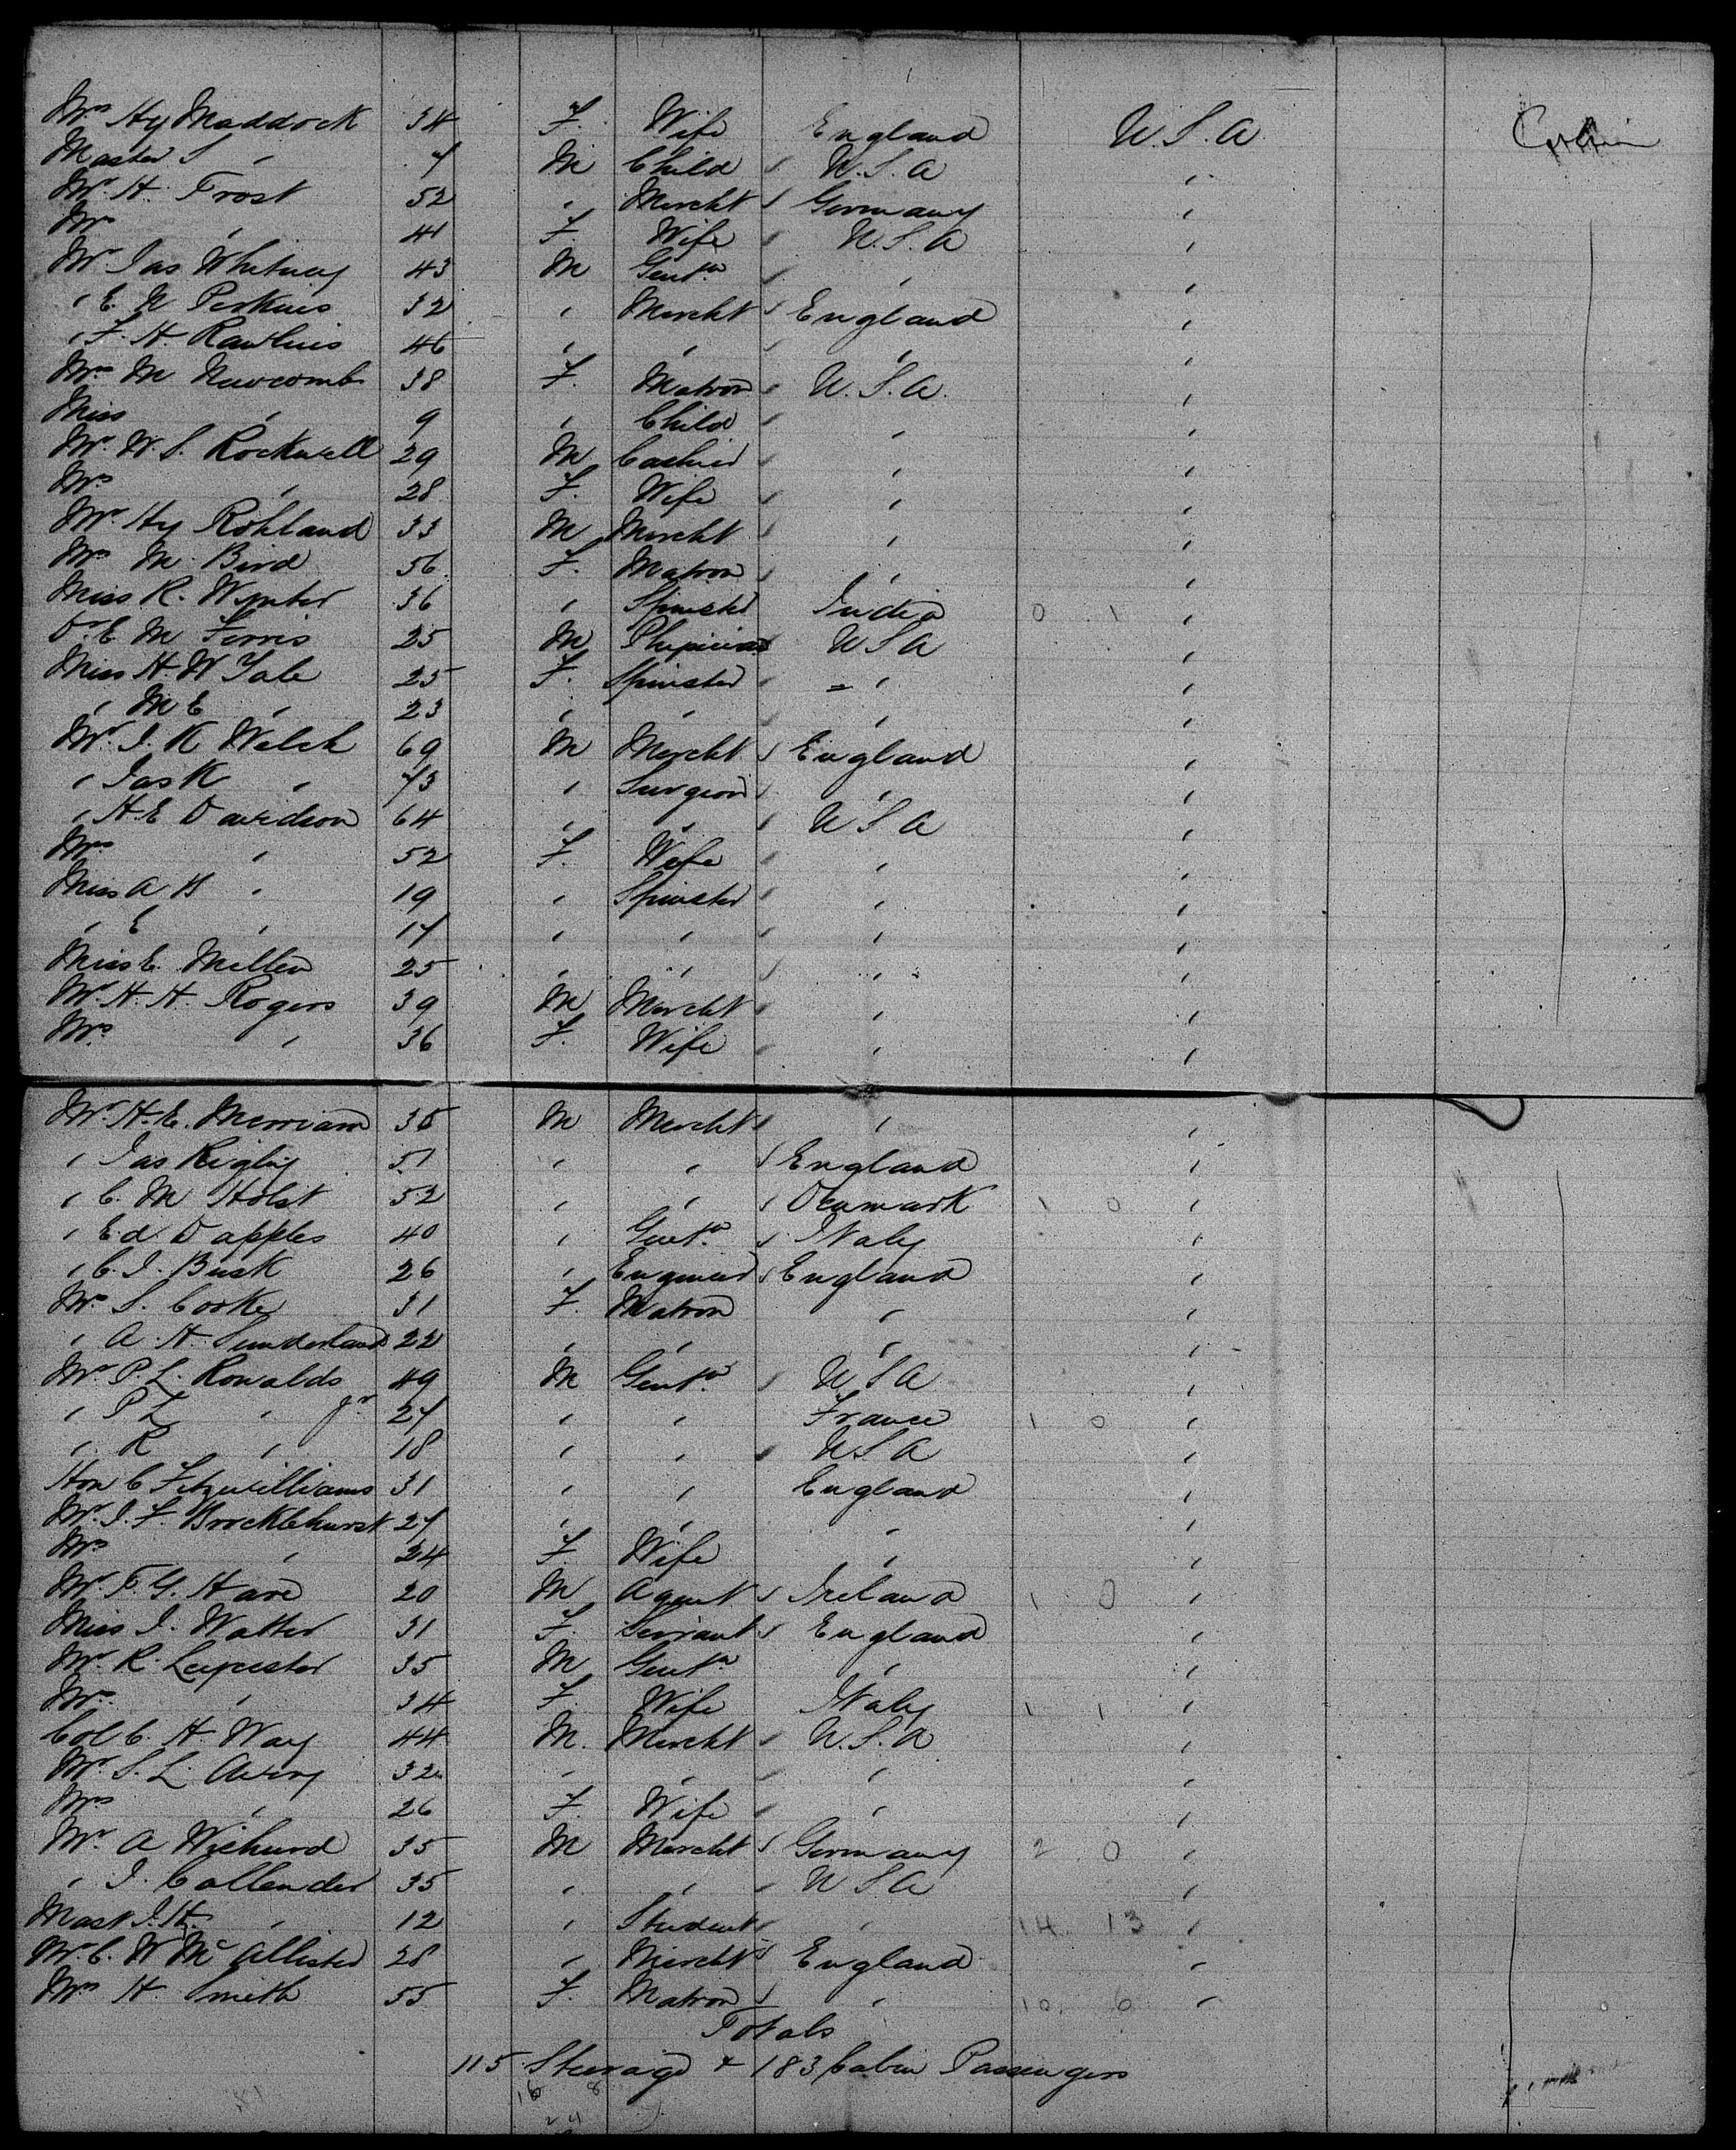 Mrs Hy Maddock 34 F. Wife England U.S.A. Cabin
Master S " 7 M Child U.S.A "
Mr. H. Frost 52 " Mercht Germany "
Mrs " 41 F. Wife U.S.A "
Mr Jas Whitney 43 M Gentn " "
" E. N Perkins 32 " Mercht England "
" F. H. Rawlins 46 " " " "
Mrs M Newcomb 38 F. Matron U.S.A. "
Miss " 9 " Child " "
Mr. W. S. Rockwell 29 M Cashier " "
Mrs " 28 F. Wife " "
Mr. Hy Rohland 33 M Mercht " "
Mrs M. Bird 56 F. Matron " "
Miss R. Wynter 36 " Spinster India 0 1 "
Dr. E. M Ferris 25 M Physician U S A "
Miss H. W Yale 25 F. Spinster " "
" M E " 23 " " " "
Mr. J. K Welch 69 M Mercht England "
" Jas K " 73 " Surgeon " "
" H E Davidson 64 " " U S A "
Mrs " 52 F. Wife " "
Miss A H " 19 " Spinster " "
" E " 17 " " " "
Miss C. Mellen 25 " " " "
Mr. H. H. Rogers 39 M Mercht " "
Mrs " 36 F. Wife " "
Mr. H. E. Merriam 35 M Mercht " "
" Jas Rigby 51 " " England "
" C. M Holst 52 " " Denmark 1 0 "
" Ed. Dapples 40 " Gentn Italy "
" C. J. Busk 26 " Engineer England "
Mrs. S. Cooke 31 F. Matron " "
" A. H. Sunderland 22 " " " "
Mr. P. L. Ronalds 49 M Gentn U S A "
" P L " Jr 27 " " France 1 0 "
" R " 18 " " U S A "
Hon C Fitzwilliams 31 " " England "
Mr. J. F. Brocklehurst 27 " " " "
Mrs " 24 F. Wife " "
Mr. F. G. Hare 20 M Agent Ireland 1 0 "
Miss J. Watter 31 F. Servant England "
Mr. R. Leycester 35 M Gentn " "
Mrs. " 34 F. Wife Italy 1 1 "
Col C. H. Way 44 M. Mercht U.S.A "
Mr. S. L. Avery 32 " " " "
Mrs " 26 F. Wife " "
Mr. A Wichurd 35 M Mercht Germany 2 0 "
" J. Callender 35 " " U S A "
Mast J. H. " 12 " Student " 14 13 "
Mr. C. W McAllister 28 " Mercht England "
Mrs H. Smith 55 F. Matron " 10 6 "
Totals
115 Steerage & 183 Cabin Passengers
16 8
24